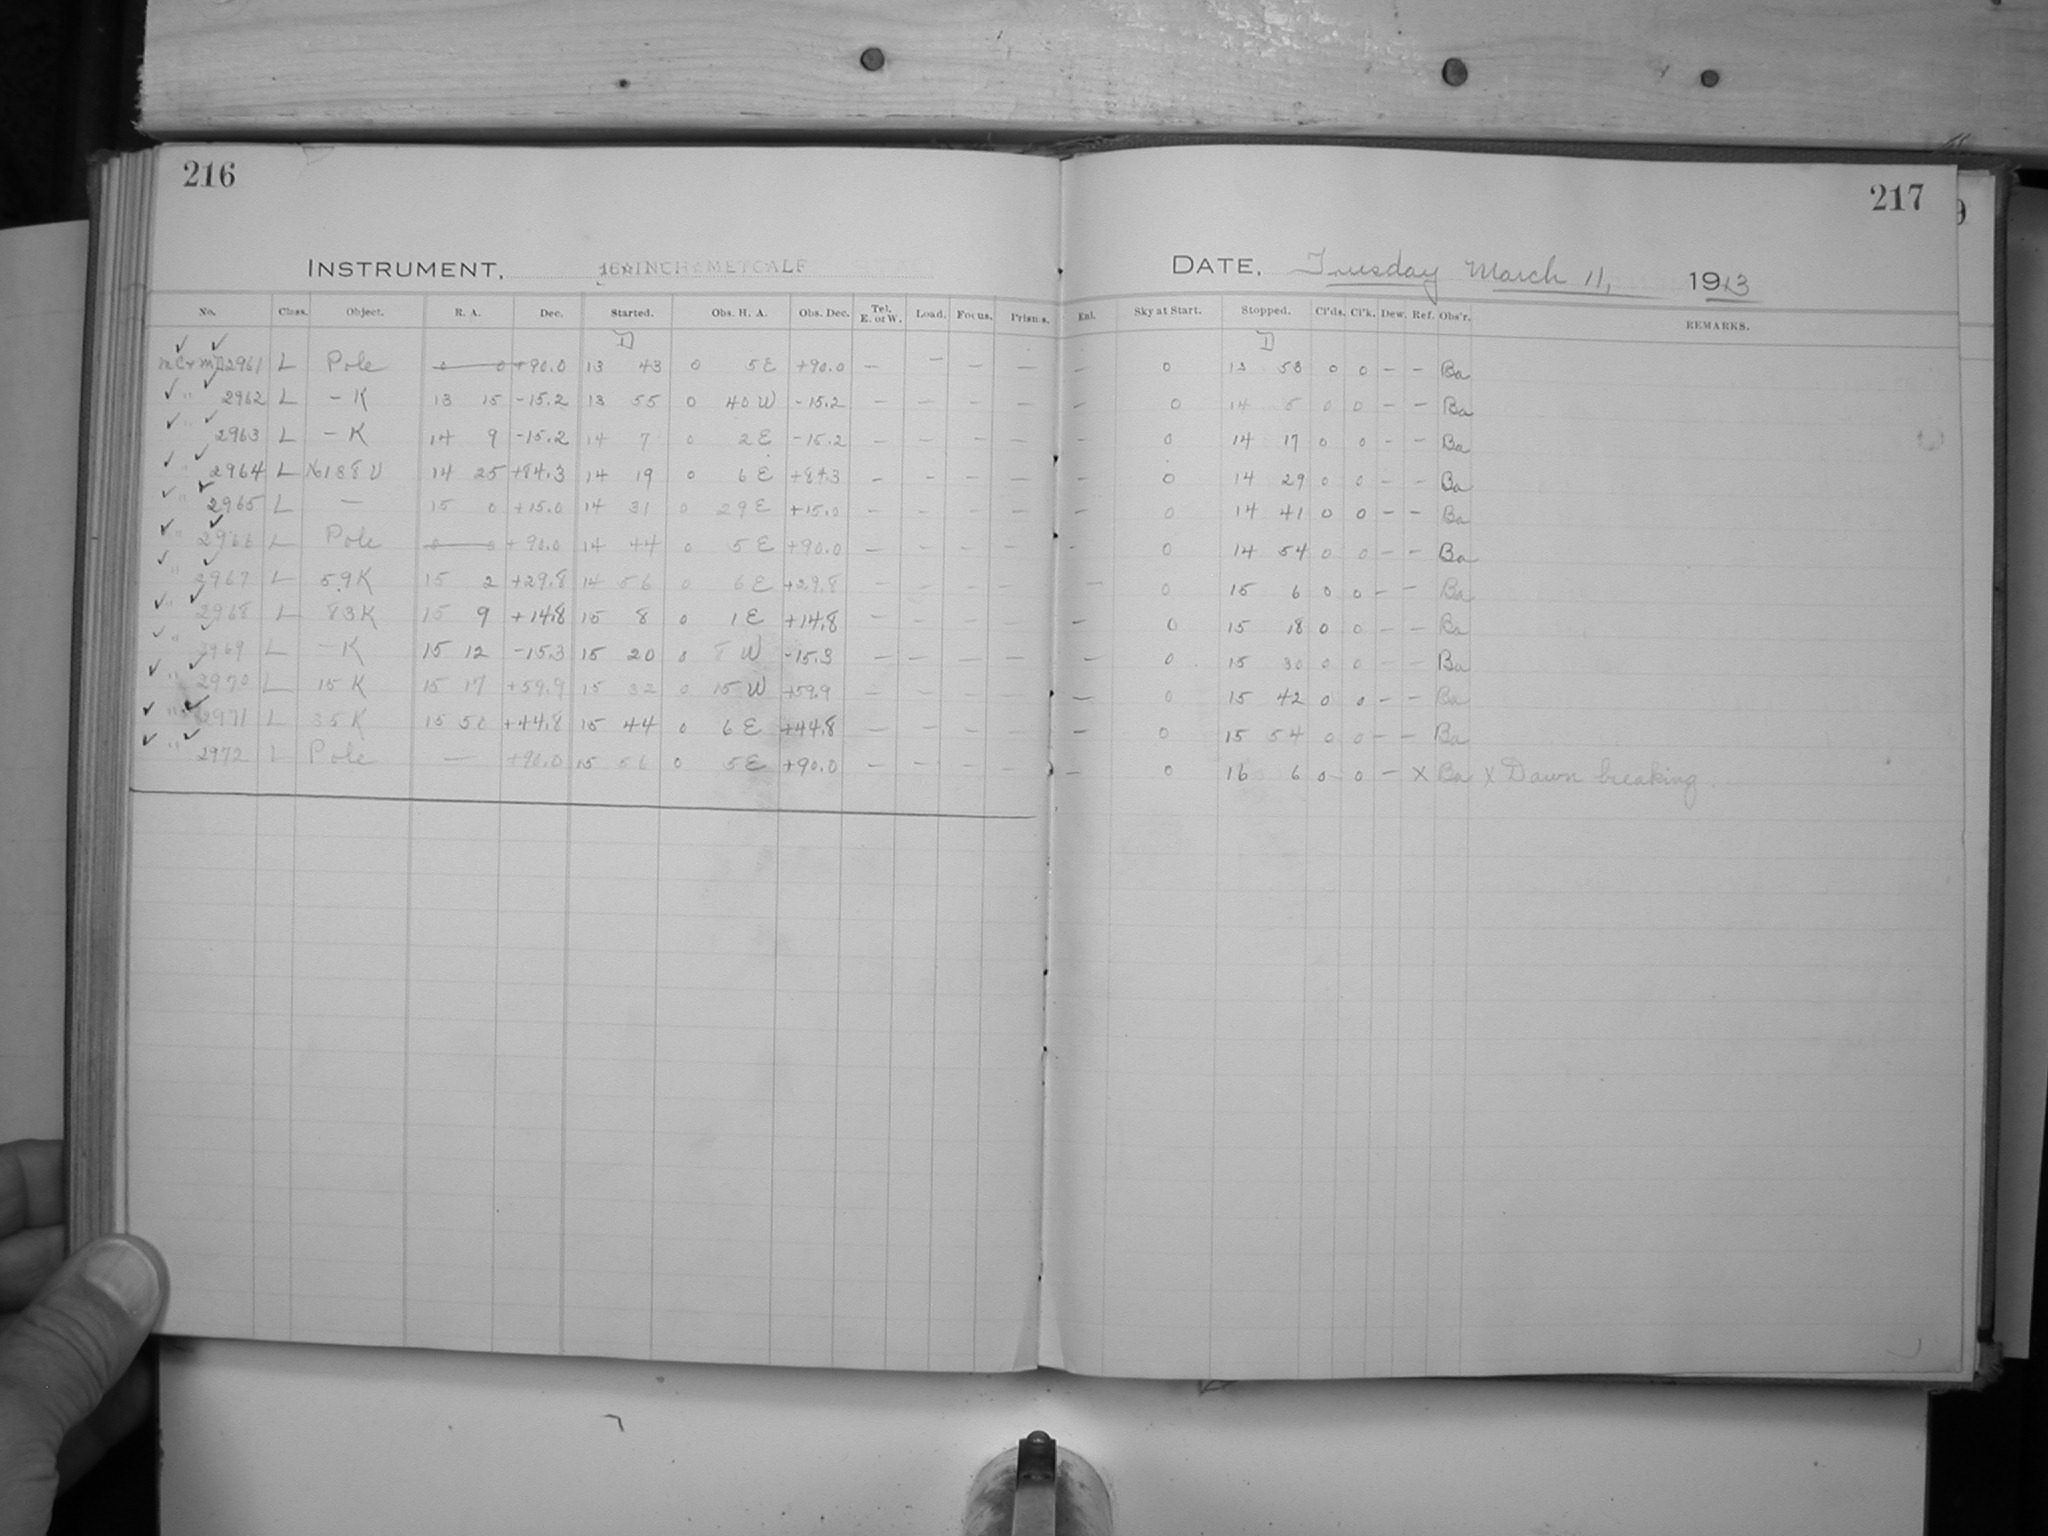 216
217
INSTRUMENT, 16 INCH METCALF
DATE, Tuesday March 11, 1913
No. Class. Object. R. A. Dec. Started. Obs. H. A. Obs. Dec. Tel. E. or W. Load. Focus. Prisms. Enl. Sky at Start. Stopped. Cl'ds. Cl'k. Dew. Ref. Obs'r. REMARKS.
2961 L Pole 0 0 +90.0 13 43 0 5 E +90.0 — — — — — 0 13 53 0 0 – – Ba
✓ " 2962 L – K 13 15 -15.2 13 55 0 40 W -15.2 — — — — — 0 14 5 0 0 – – Ba
✓ " 2963 L – K 14 9 -15.2 14 7 0 2 E -15.2 — — — — — 0 14 17 0 0 – – Ba
✓ " 2964 L 188 U 14 25 +84.3 14 19 0 6 E +84.3 — — — — — 0 14 29 0 0 – – Ba
✓ " 2965 L — 15 0 +15.0 14 31 0 29 E +15.0 — — — — — 0 14 41 0 0 – – Ba
✓ " 2966 L Pole 0 0 +90.0 14 44 0 5 E +90.0 — — — — — 0 14 54 0 0 – – Ba
✓ " 2967 L 59 K 15 2 +29.8 14 56 0 6 E +29.8 — — — — — 0 15 6 0 0 – – Ba
✓ " 2968 L 83 K 15 9 +14.8 15 8 0 1 E +14.8 — — — — — 0 15 18 0 0 – – Ba
✓ " 2969 L – K 15 12 -15.3 15 20 0 8 W -15.3 — — — — — 0 15 30 0 0 – – Ba
✓ " 2970 L 15 K 15 17 +59.9 15 32 0 15 W +59.9 — — — — — 0 15 42 0 0 – – Ba
✓ " 2971 L 35 K 15 50 +44.8 15 44 0 6 E +44.8 — — — — — 0 15 54 0 0 – – Ba
✓ " 2972 L Pole — +90.0 15 56 0 5 E +90.0 — — — — — 0 16 6 0 0 – X Ba X Dawn breaking.